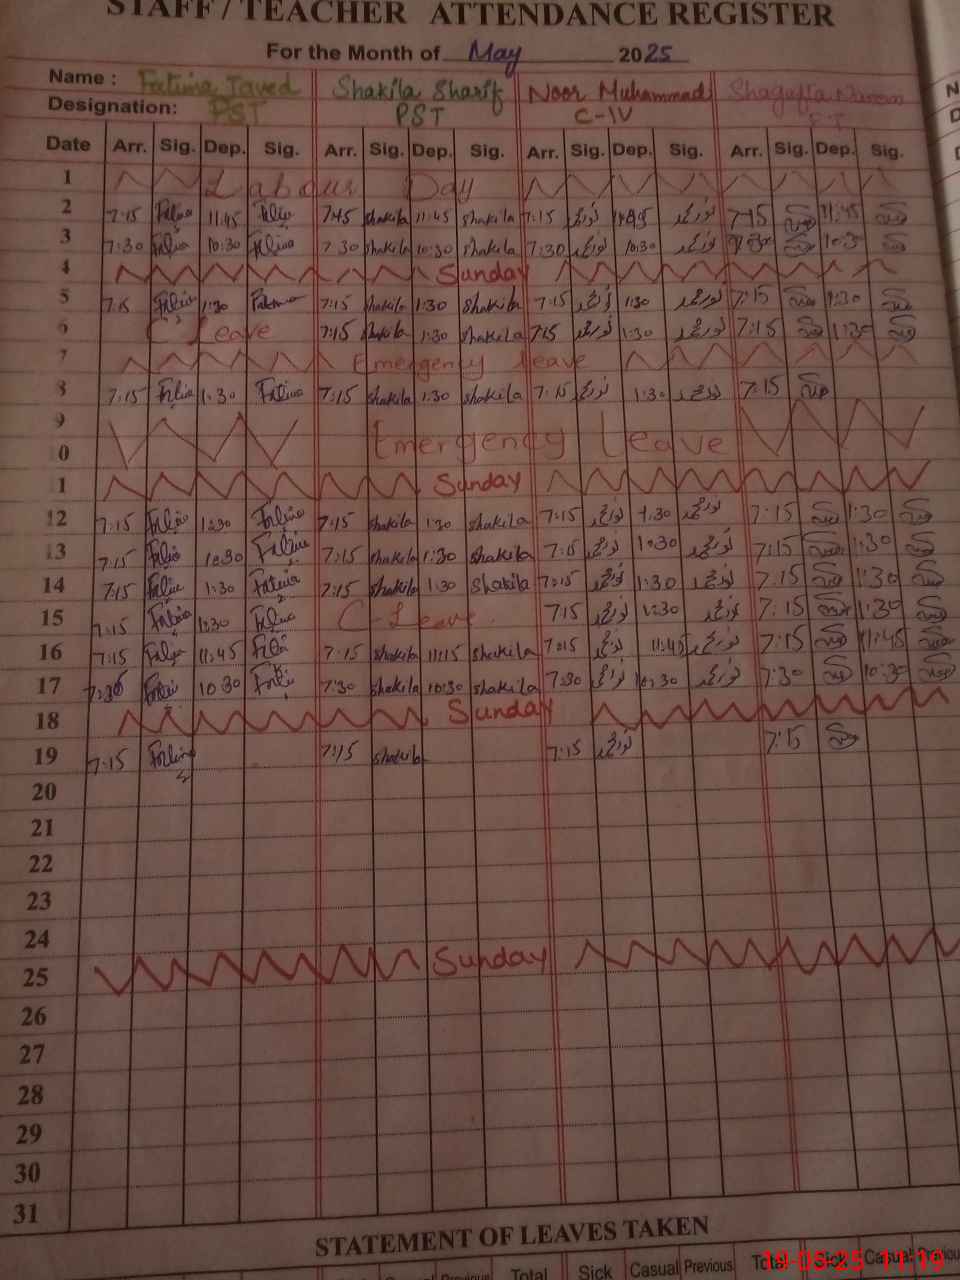 STAFF / TEACHER ATTENDANCE REGISTER
For the Month of May 2025
Name : Fatima Javed Shakila Sharif Noor Muhammad Shagufta
Designation: PST PST C-IV
Date Arr. Sig. Dep. Sig. Arr. Sig. Dep. Sig. Arr. Sig. Dep. Sig. Arr. Sig. Dep. Sig.
1 Labour Day
2 7:15 11:45 7:45 shakila 11:45 shakila 7:15 نورمحمد 11:45 نورمحمد 7:15 11:45
3 7:30 10:30 7 30 shakila 10:30 shakila 7:30 نورمحمد 10:30 نورمحمد 7:30 10:3
4 Sunday
5 7:15 1:30 Fatima 7:15 shakila 1:30 shakila 7:15 نورمحمد 1:30 نورمحمد 7:15 1:30
6 C Leave 7:15 shakila 1:30 shakila 7:15 نورمحمد 1:30 نورمحمد 7:15 1:30
7 Emergency leave
8 7:15 1:30 Fatima 7:15 shakila 1:30 shakila 7:15 نورمحمد 1:30 نورمحمد 7:15
9
0 Emergency Leave
1 Sunday
12 7:15 1:30 7:15 shakila 1:30 shakila 7:15 نورمحمد 1:30 نورمحمد 7:15 1:30
13 7:15 1:30 7:15 shakila 1:30 shakila 7:15 نورمحمد 1:30 نورمحمد 7:15 1:30
14 7:15 1:30 Fatima 7:15 shakila 1:30 Shakila 7:15 نورمحمد 1:30 نورمحمد 7:15 1:30
15 7:15 1:30 C-Leave. 7:15 نورمحمد 1:30 نورمحمد 7:15 1:30
16 7:15 11:45 7:15 shakila 11:15 shakila 7:15 نورمحمد 11:45 نورمحمد 7:15 11:45
17 7:30 10:30 7:30 shakila 10:30 shakila 7:30 نورمحمد 10:30 نورمحمد 7:30 10:30
18 Sunday
19 7:15 7:15 shakila 7:15 نورمحمد 7:15
20
21
22
23
24
25 Sunday
26
27
28
29
30
31
STATEMENT OF LEAVES TAKEN
Casual Previous Total Sick Casual Previous Total Sick Casual Previou
19-05-25 11:19